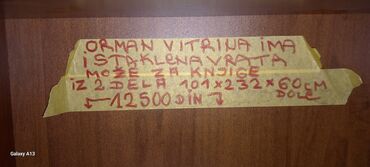 ORMAN VITRINA IMA
I STAKLENA VRATA
MOŽE ZA KNJIGE
IZ 2 DELA 101x232x60CM
DOLE
←12500DIN→
Galaxy A13